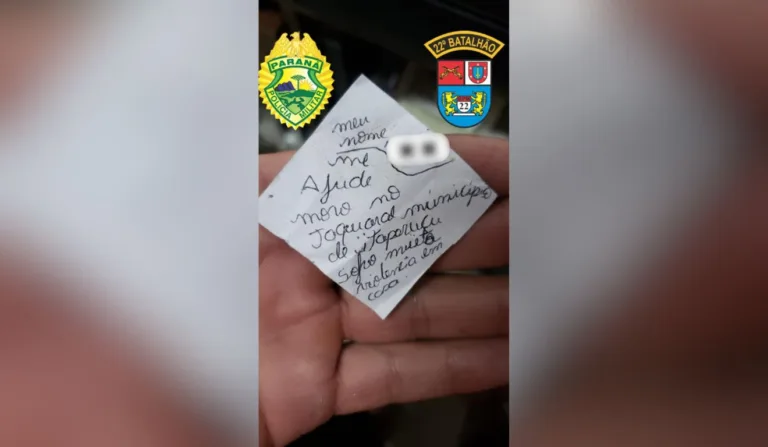 PARANÁ
POLÍCIA MILITAR
22º BATALHÃO
22
meu
nome
me
Ajude
moro no
Jaguará município
de itaperuçu
sofro muita
violencia em
casa.